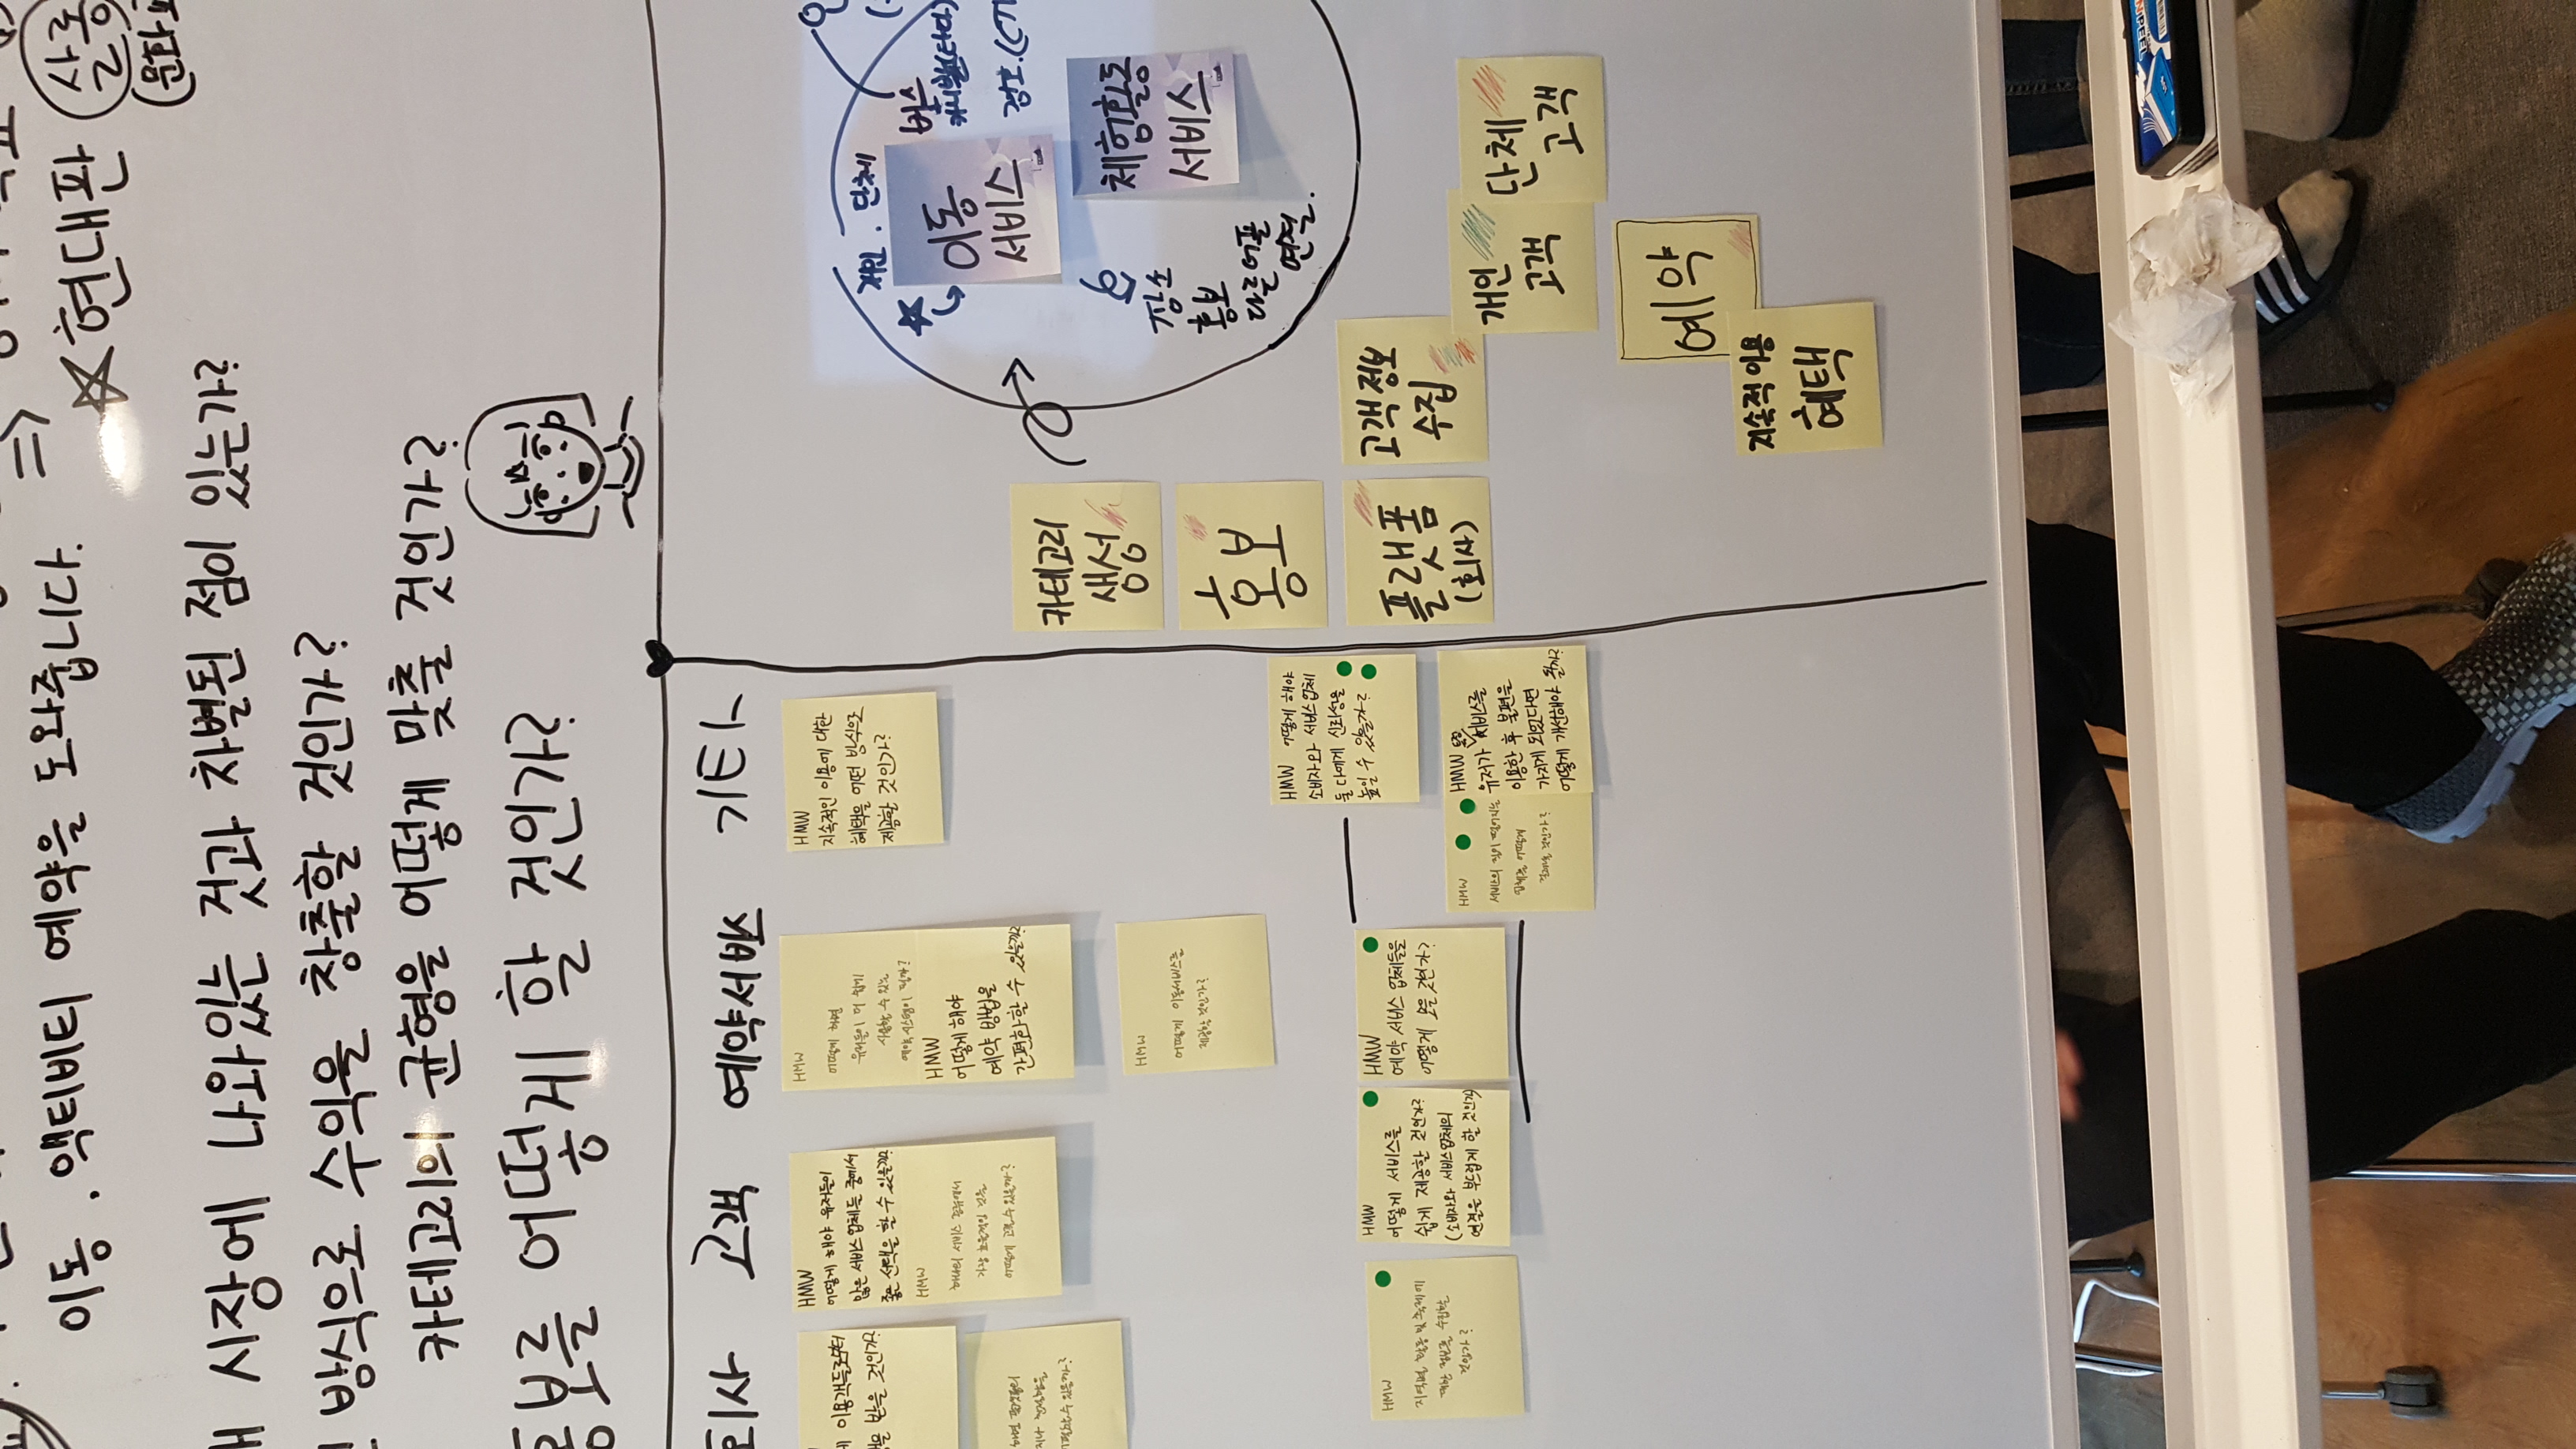 이동 . 액티비티 예약을 도와줍니다.
=>
☆ 현대판 살롱
(문화
시장에 나와있는 것과 차별된 점이 있는가?
방식으로 수익을 창출할 것인가?
카테고리의 균형을 어떻게 맞출 것인가?
홍보를 어떻게 할 것인가?
회사
고객
예약서비스
기타
이용객들로부터
받을 것인가?
HMW
어떻게 해야 유저들이
많은 서비스 업체들 중에서
좋은 선택을 할 수 있을까?
HMW
하나의 서비스 종류에서
가장 효율적인 것을
어떻게 고를 수 있을까?
HMW
어떻게 하면
유저들이 더 쉽게
사용할 수 있는
예약 시스템이 될까?
HMW
어떻게 해야
예약 방법을
간편화할 수 있을까?
HMW
어떻게 이동서비스를
제공할 것인가?
HMW
지속적인 이용에 대한
혜택을 어떤 방식으로
제공할 것인가?
HMW
지역별 활동 및 축제에
대한 정보를 수집할
것인가?
HMW
어떻게 서비스를
쉽게 제공할 것인가?
(소비자와 서비스업체의
연결을 부드럽게 할 것인가)
HMW
예약 서비스 업체들을
어떻게 모을 것인가?
HMW 어떻게 해야
소비자와 서비스 업체
둘 다에게 신뢰성을
높일 수 있을까?
HMW
서비스의 질이 떨어지는
업체를 어떻게
걸러낼 것인가?
HMW
유저가 서비스를
이용한 후 불편을
가지게 되었다면
어떻게 개선해야 될까?
카테고리
생성
홍보
플랫폼
(회사)
고객 정보
수집
개인
고객
단체
고객
예약
지속적 이용
혜택
개인 . 단체
이동
서비스
버스
카니발(타다)
체험활동
서비스
장소
홍보
다른 어플
연결.